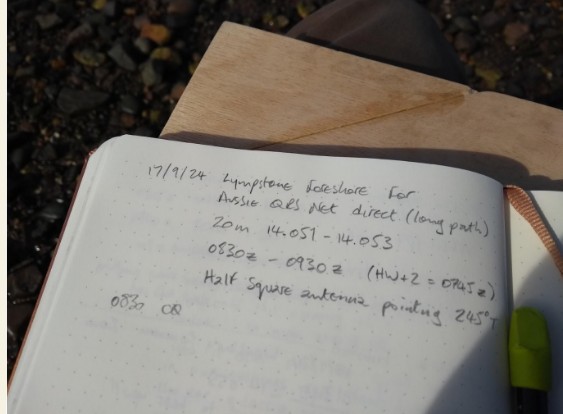 17/9/24 Lympstone foreshore for
Aussie QRS Net direct (long path)
20m 14.051 - 14.053
0830z - 0930z (HW+2 = 0745z)
Half Square antenna pointing 245°T
0830 CQ